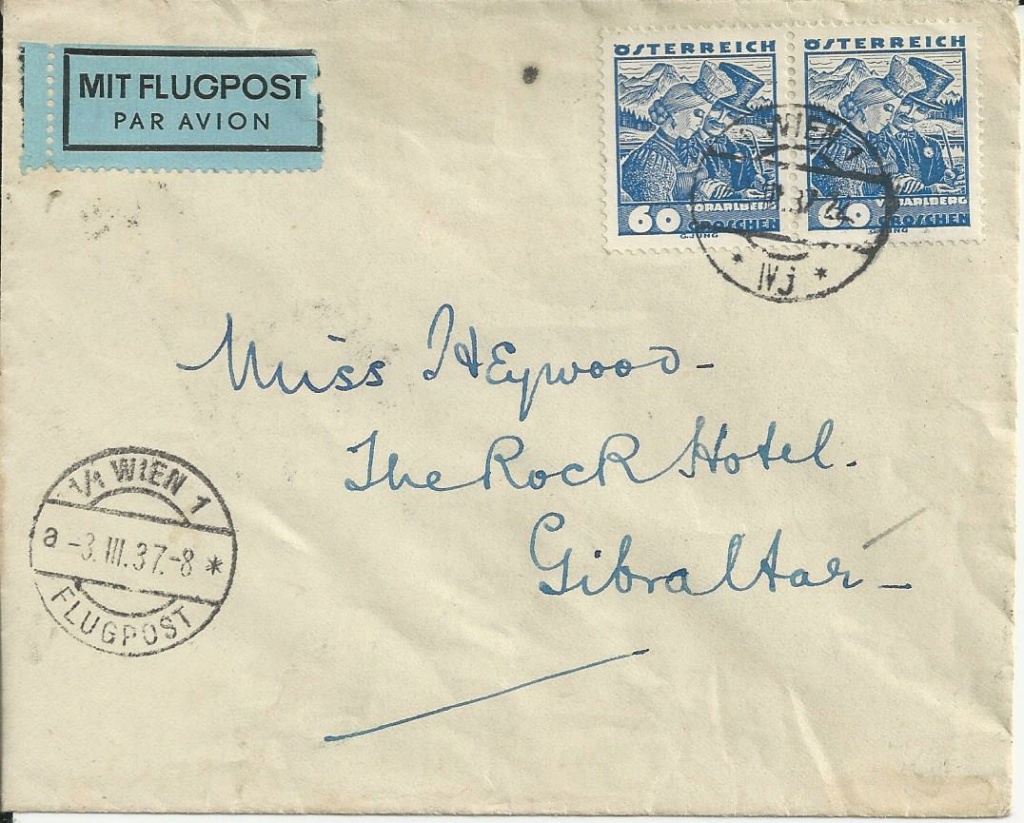 MIT FLUGPOST
PAR AVION
ÖSTERREICH
60 VORARLBERG
GROSCHEN
G.JUNG
ÖSTERREICH
60 VORARLBERG
GROSCHEN
G.JUNG
WIEN 1
.37
* IVj *
Miss Heywood -
The Rock Hotel.
Gibraltar -
1/1 WIEN 1
a -3.III.37.-8 *
FLUGPOST